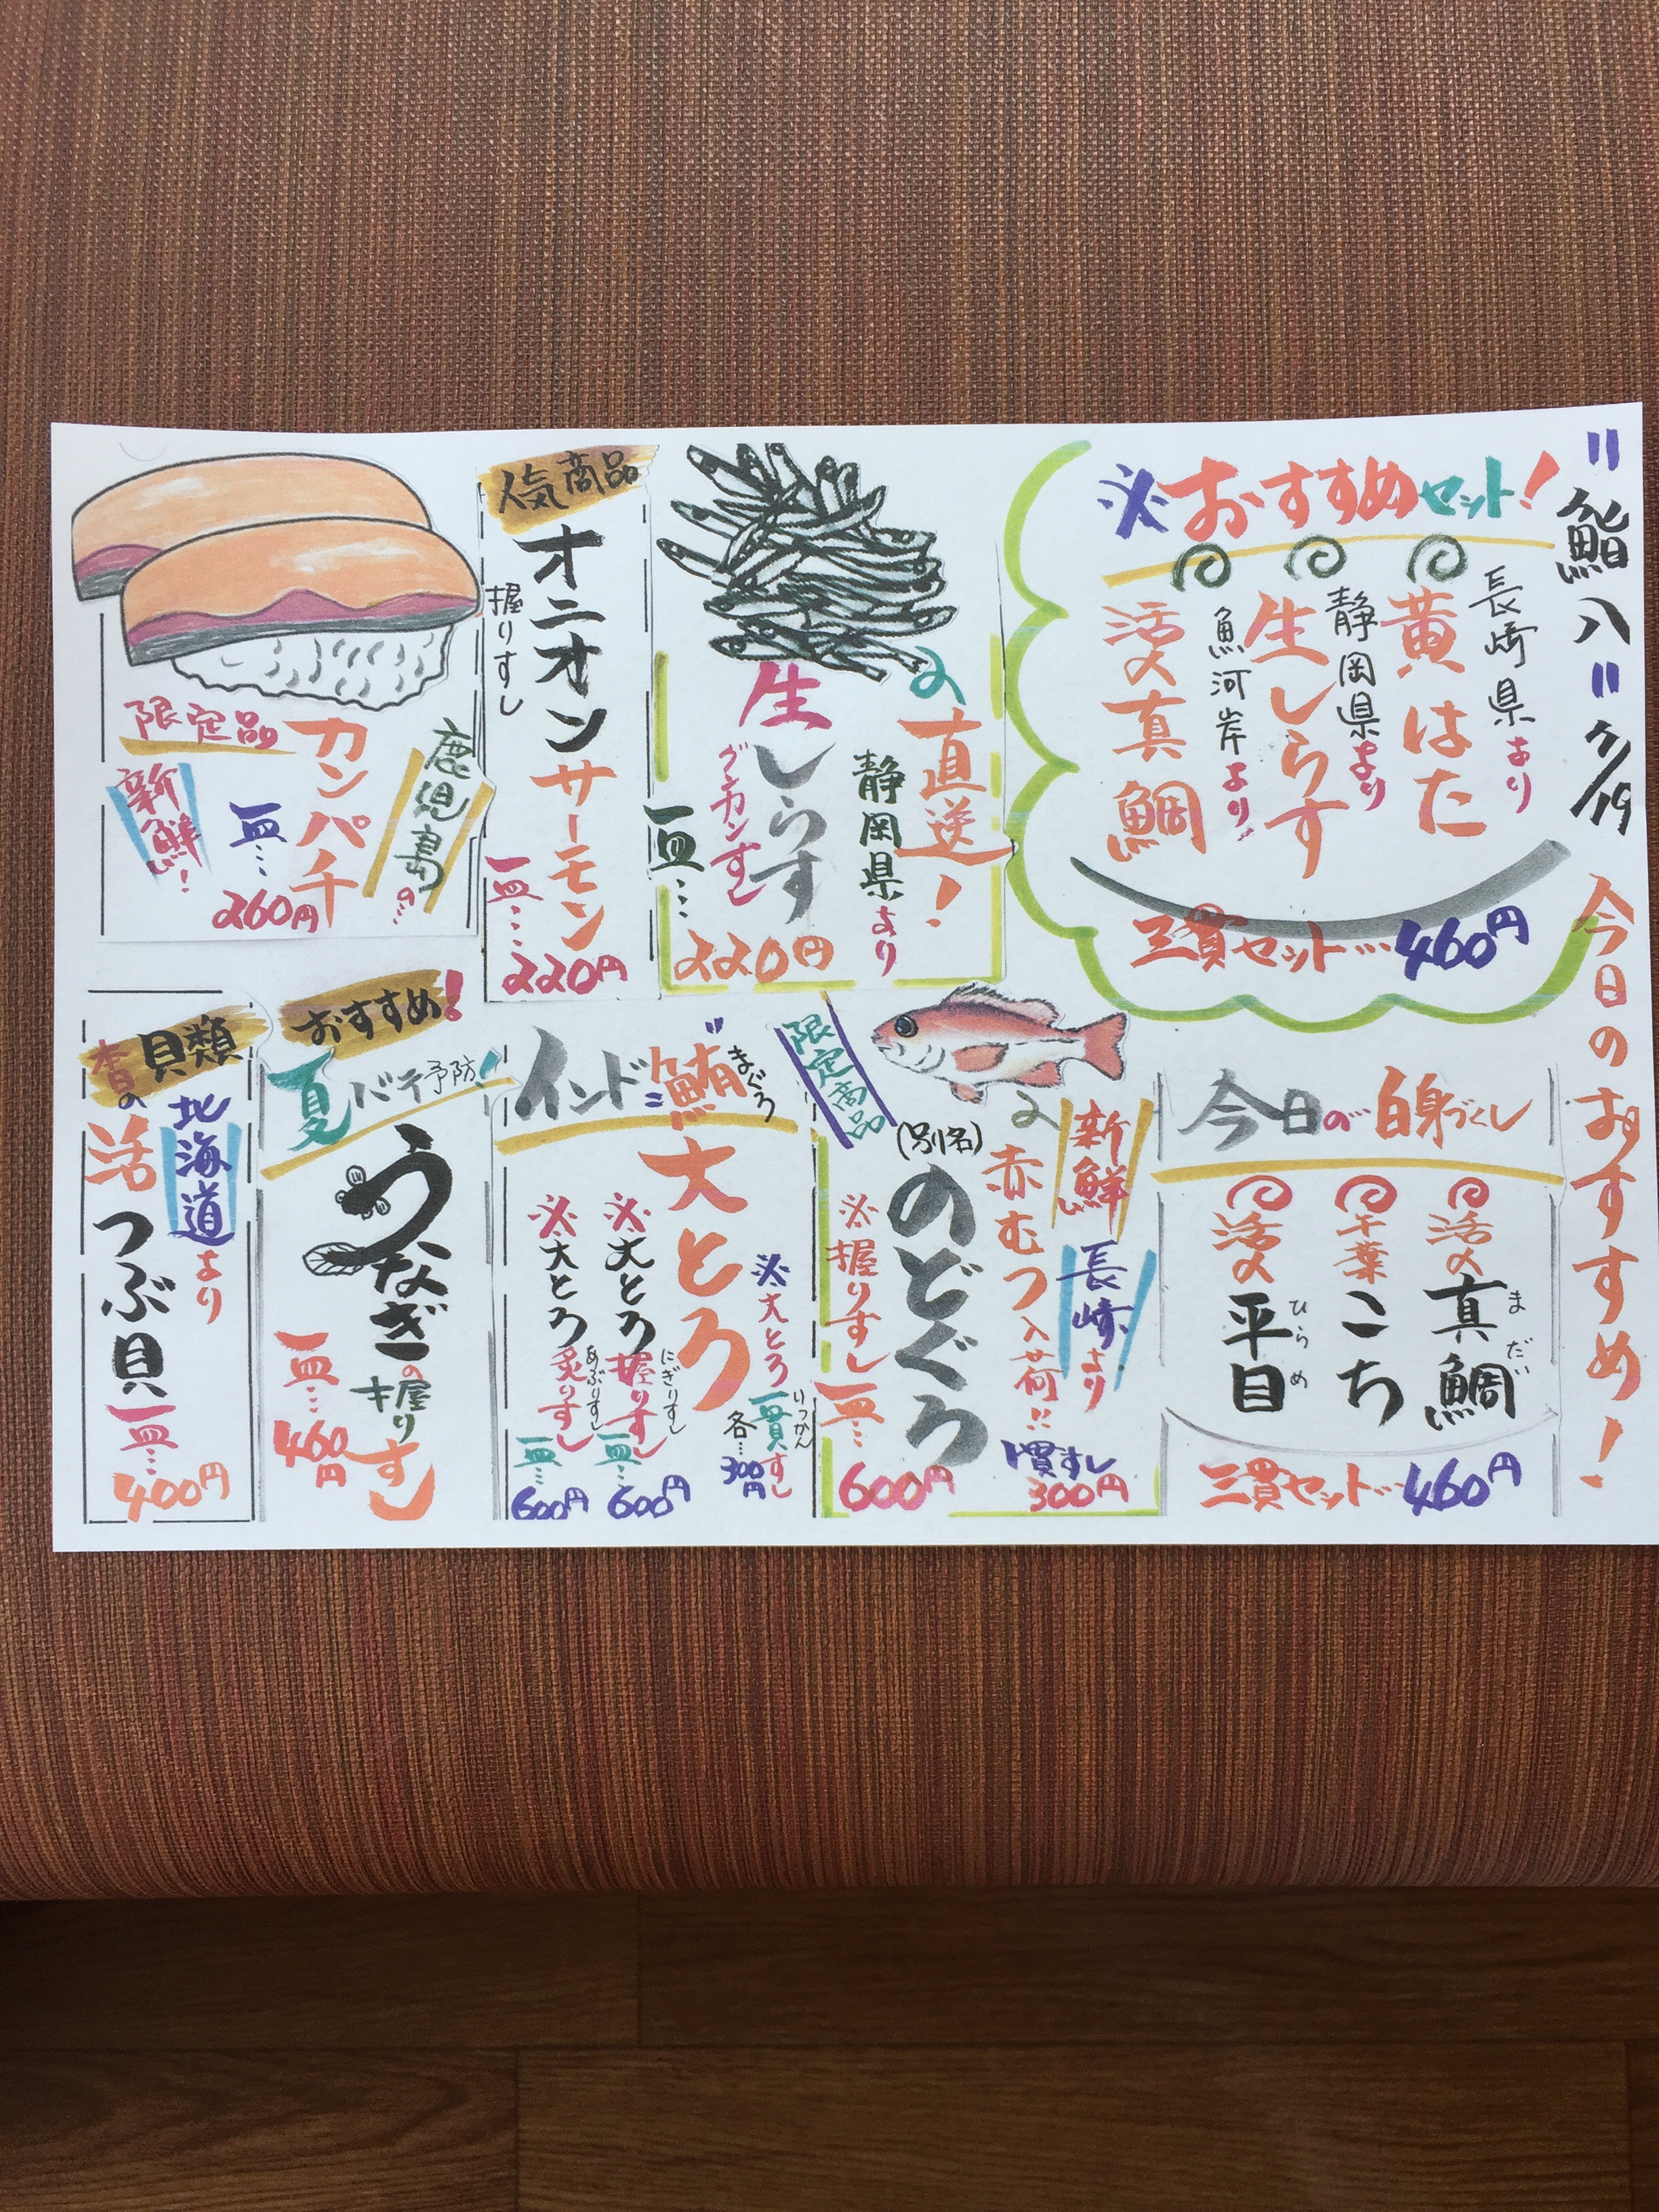 "鮨八" 7/19
今日のおすすめ！
※おすすめセット！
長崎県より
黄はた
静岡県より
生しらす
魚河岸より
活〆真鯛
三貫セット…460円
直送！
静岡県より
生しらす
グンカンすし
一皿…
220円
人気商品
オニオンサーモン
握りすし
一皿…
220円
鹿児島の…
カンパチ
限定品
新鮮！
一皿…
260円
今日の白身づくし
活〆真鯛
まだい
千葉こち
活〆平目
ひらめ
三貫セット…460円
限定商品
新鮮
長崎より
赤むつ入荷!!
1貫すし
300円
(別名)
のどぐろ
※握りすし
一皿…
600円
インド鮪
まぐろ
大とろ
※大とろ
一貫すし
いっかん
各…300円
※大とろ握りすし
にぎりすし
一皿…
600円
※大とろ炙りすし
あぶりすし
一皿…
600円
おすすめ！
夏バテ予防！
うなぎの握りすし
一皿…
460円
本日の貝類
北海道より
活つぶ貝
一皿…
400円